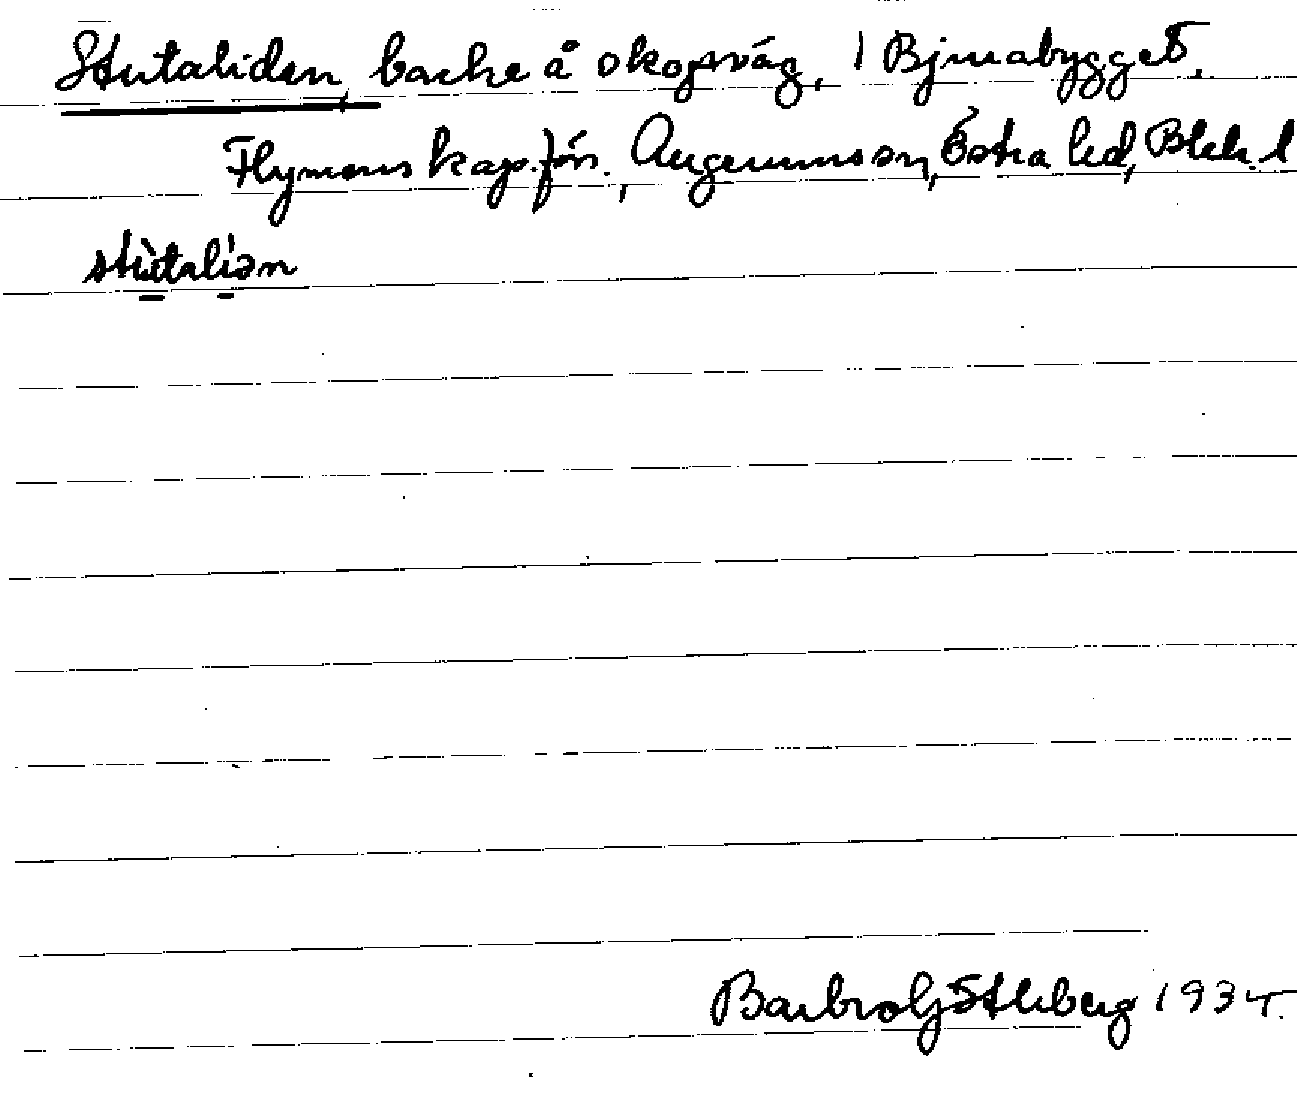 Stutaliden, backe å skogsväg, i Bjurabygget,
Flymens kap.förs., Augerums sn, Östra hd, Blek. l
stùtalíən
Barbro Götleberg 193